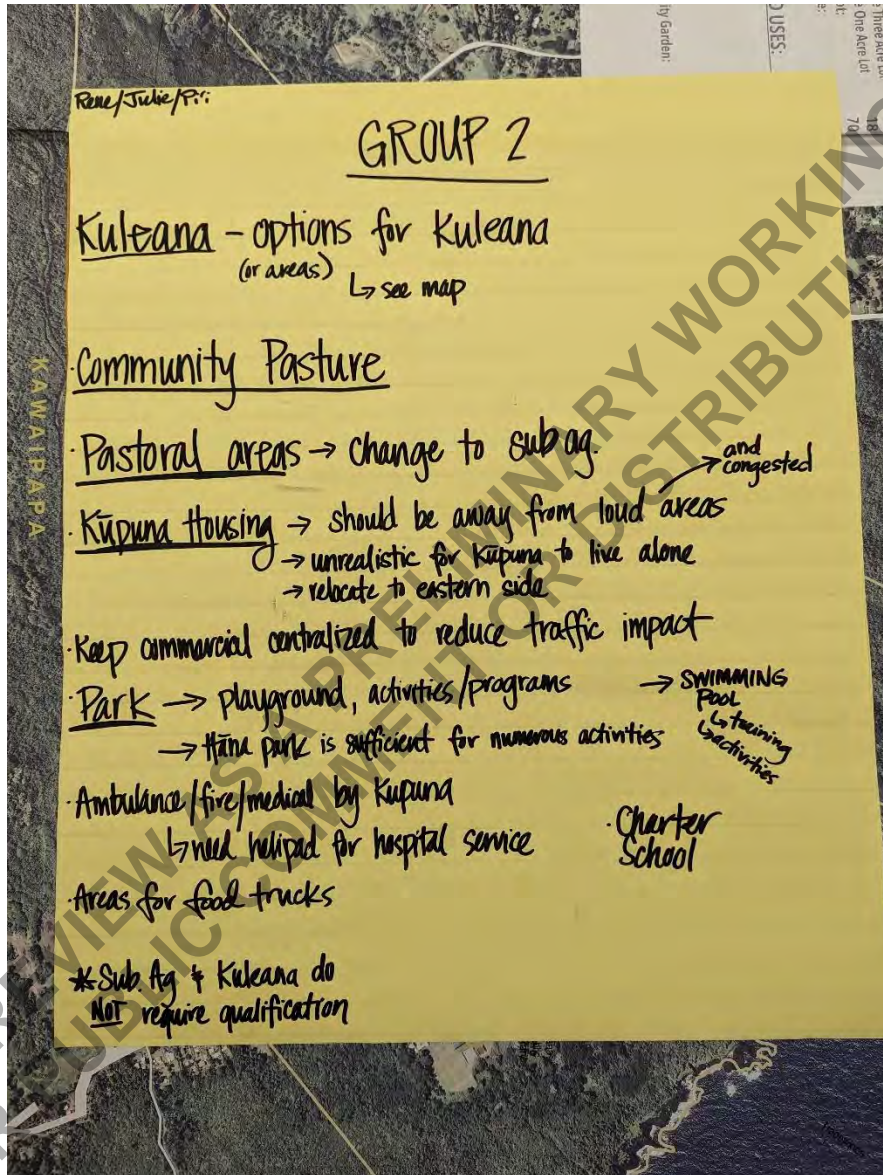 Rene/Julie/Piʻi
GROUP 2
Kuleana - options for Kuleana
(or areas)
↳ see map
·Community Pasture
·Pastoral areas → change to sub ag.
·Kūpuna Housing → should be away from loud areas → and congested
→ unrealistic for Kūpuna to live alone
→ relocate to eastern side
·Keep commercial centralized to reduce traffic impact
·Park → playground, activities/programs → SWIMMING POOL
↳ training
↳ activities
→ Hāna park is sufficient for numerous activities
·Ambulance/fire/medical by Kupuna
↳ need helipad for hospital service
·Charter School
·Areas for food trucks
*Sub. Ag & Kuleana do
NOT require qualification
KAWAIPAPA
ity Garden:
USES:
Three Acre Lot
One Acre Lot
18
70